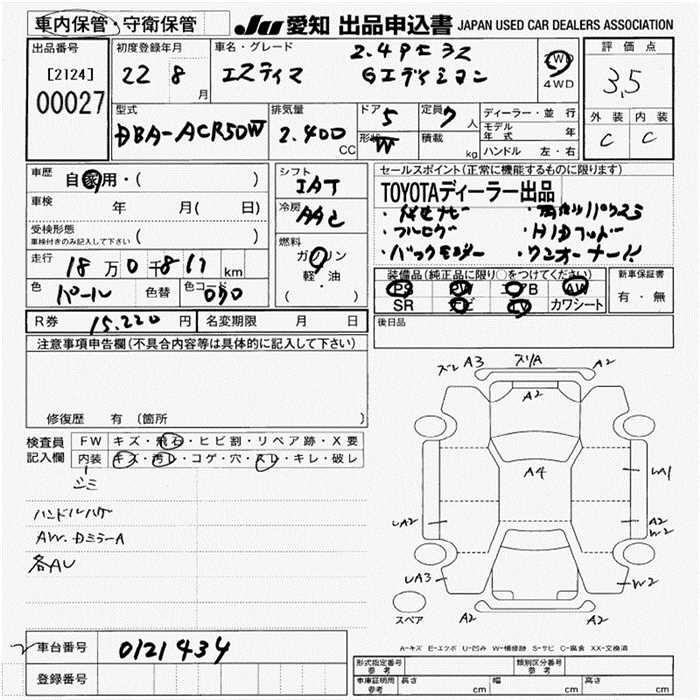 車内保管・守衛保管
JU 愛知 出品申込書 JAPAN USED CAR DEALERS ASSOCIATION
出品番号
[2124]
00027
初度登録年月
22 8月
車名・グレード
2.4アエラス
エスティマ Gエディション
2WD
4WD
評価点
3,5
外装 内装
C C
型式
DBA-ACR50W
排気量
2.400 CC
ドア 5
形状 W
定員 7 人
積載 kg
ディーラー・並行
モデル年式 年
ハンドル 左・右
車歴 自家用・( )
車検 年 月( 日)
受検形態
車検付きのみ記入して下さい ( )
走行 18万0千817km
色 パール 色替 色コード 070
シフト
IAT
冷房
AAC
燃料
ガソリン
軽・油
( )
セールスポイント(正常に機能するものに限ります)
TOYOTAディーラー出品
・ナビ
・フルセグ ・HID
・バックモニター ・ワンオーナー
装備品(純正品に限り○をつけてください)
PS PW エアB AW
SR ナビ TV カワシート
新車保証書
有・無
R券 15.220円 名変期限 月 日
後日品
注意事項申告欄(不具合内容等は具体的に記入して下さい)
修復歴 有(箇所 )
検査員記入欄
FW キズ・飛石・ヒビ割・リペア跡・X要
内装 キズ・汚レ・コゲ・穴・スレ・キレ・破レ
シミ
ハンドルハゲ
AW.ドミラーA
各AU
ズレ A3 ズリA A2
A2
A4
LA1
LA2
A2
W2
LA3
W2
A2 A2
スペア
A-キズ E-エクボ U-凹み W-補修跡 S-サビ C-腐食 XX-交換済
車台番号 0121434
登録番号
形式指定番号 参考 類別区分番号 参考
車庫証明用 参考 長さ cm 幅 cm 高さ cm